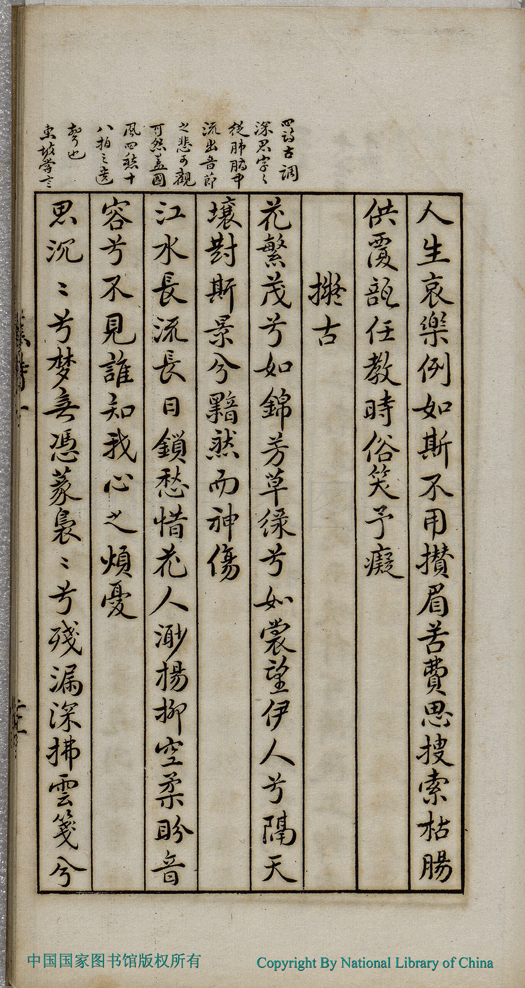 人生哀樂例如斯不用攢眉苦費思搜索枯腸
供覆瓿任教時俗笑予癡
擬古
花繁茂兮如錦芳草綠兮如裳望伊人兮隔天
壤對斯景兮黯然而神傷
江水長流長日鎖愁惜花人渺楊柳空柔盼音
容兮不見誰知我心之煩憂
思沉〻兮梦無憑篆裊〻兮殘漏深拂雲箋兮
四詩古調
深思字〻
從肺腑中
流出音節
之悲可觀
可然蓋國
風四愁十
八拍之遺
響也
東坡學言
中国国家图书馆版权所有
Copyright By National Library of China